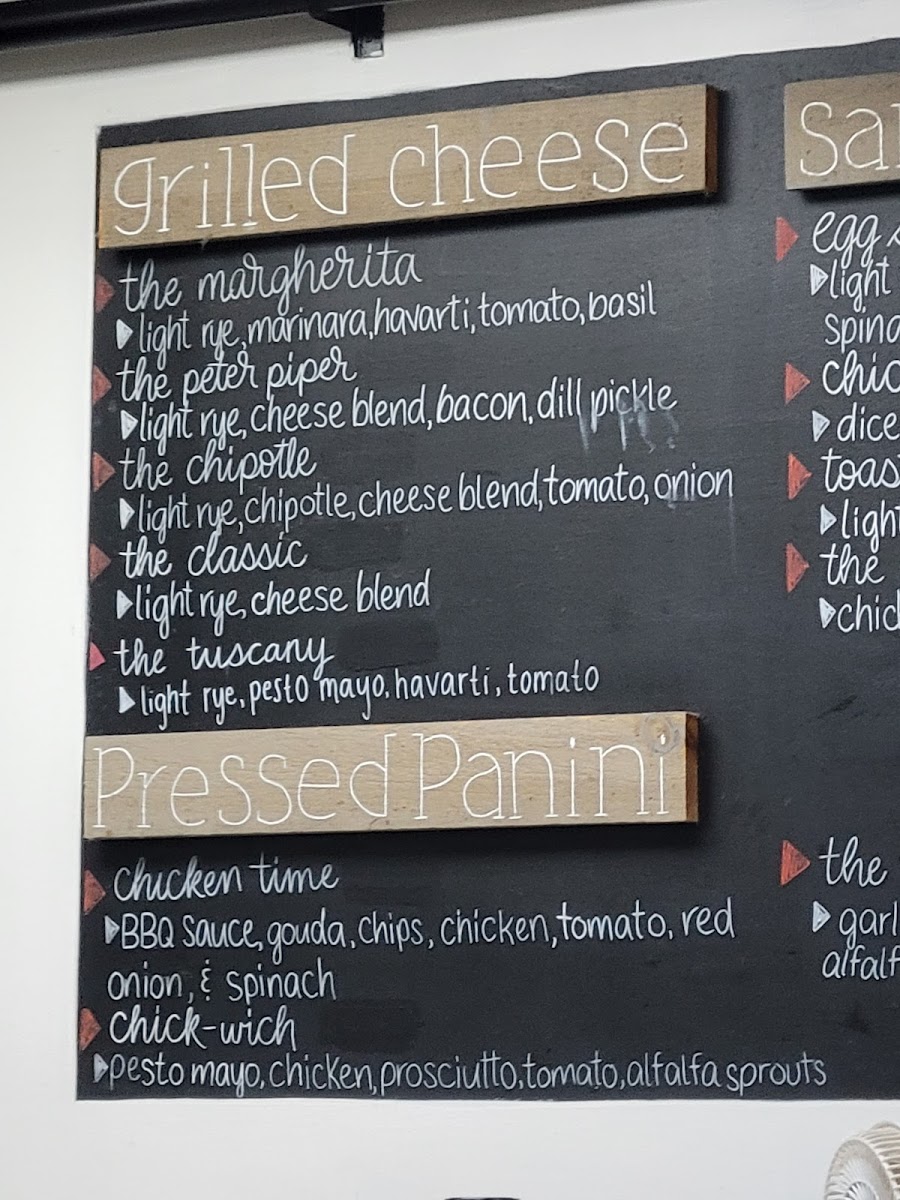 grilled cheese
the margherita
light rye, marinara, havarti, tomato, basil
the peter piper
light rye, cheese blend, bacon, dill pickle
the chipotle
light rye, chipotle, cheese blend, tomato, onion
the classic
light rye, cheese blend
the tuscany
light rye, pesto mayo, havarti, tomato
Pressed Panini
chicken time
BBQ Sauce, gouda, chips, chicken, tomato, red
onion, & spinach
chick-wich
pesto mayo, chicken, prosciutto, tomato, alfalfa sprouts
egg
light
the
the